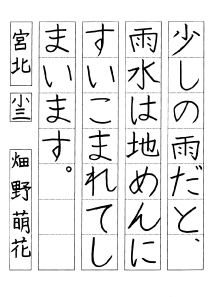 少しの雨だと、
雨水は地めんに
すいこまれてし
まいます。
宮北 小三 畑野萌花